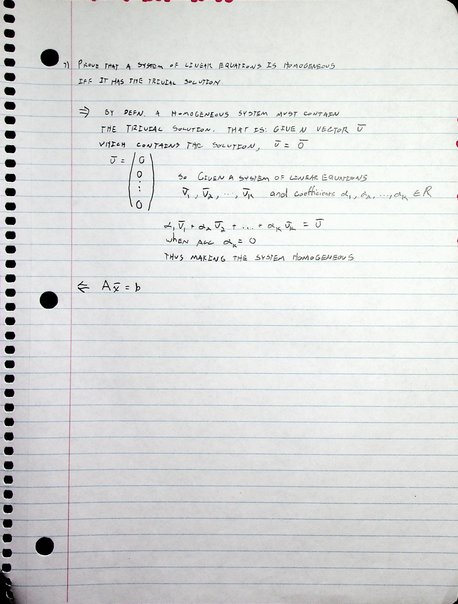 7) PROVE THAT A SYSTEM OF LINEAR EQUATIONS IS HOMOGENEOUS
IFF IT HAS THE TRIVIAL SOLUTION
⇒ BY DEFN. A HOMOGENEOUS SYSTEM MUST CONTAIN
THE TRIVIAL SOLUTION. THAT IS: GIVEN VECTOR Ū
WHICH CONTAINS THE SOLUTION, ū = Ō
Ū = (0
0
⋮
0)
SO GIVEN A SYSTEM OF LINEAR EQUATIONS
v̄₁, v̄₂, ..., v̄ₖ and coefficients α₁, α₂, ..., αₖ ∈ R
α₁v̄₁ + α₂v̄₂ + ... + αₖv̄ₖ = Ū
when ALL αₖ = 0
THUS MAKING THE SYSTEM HOMOGENEOUS
⇐ Ax̄ = b